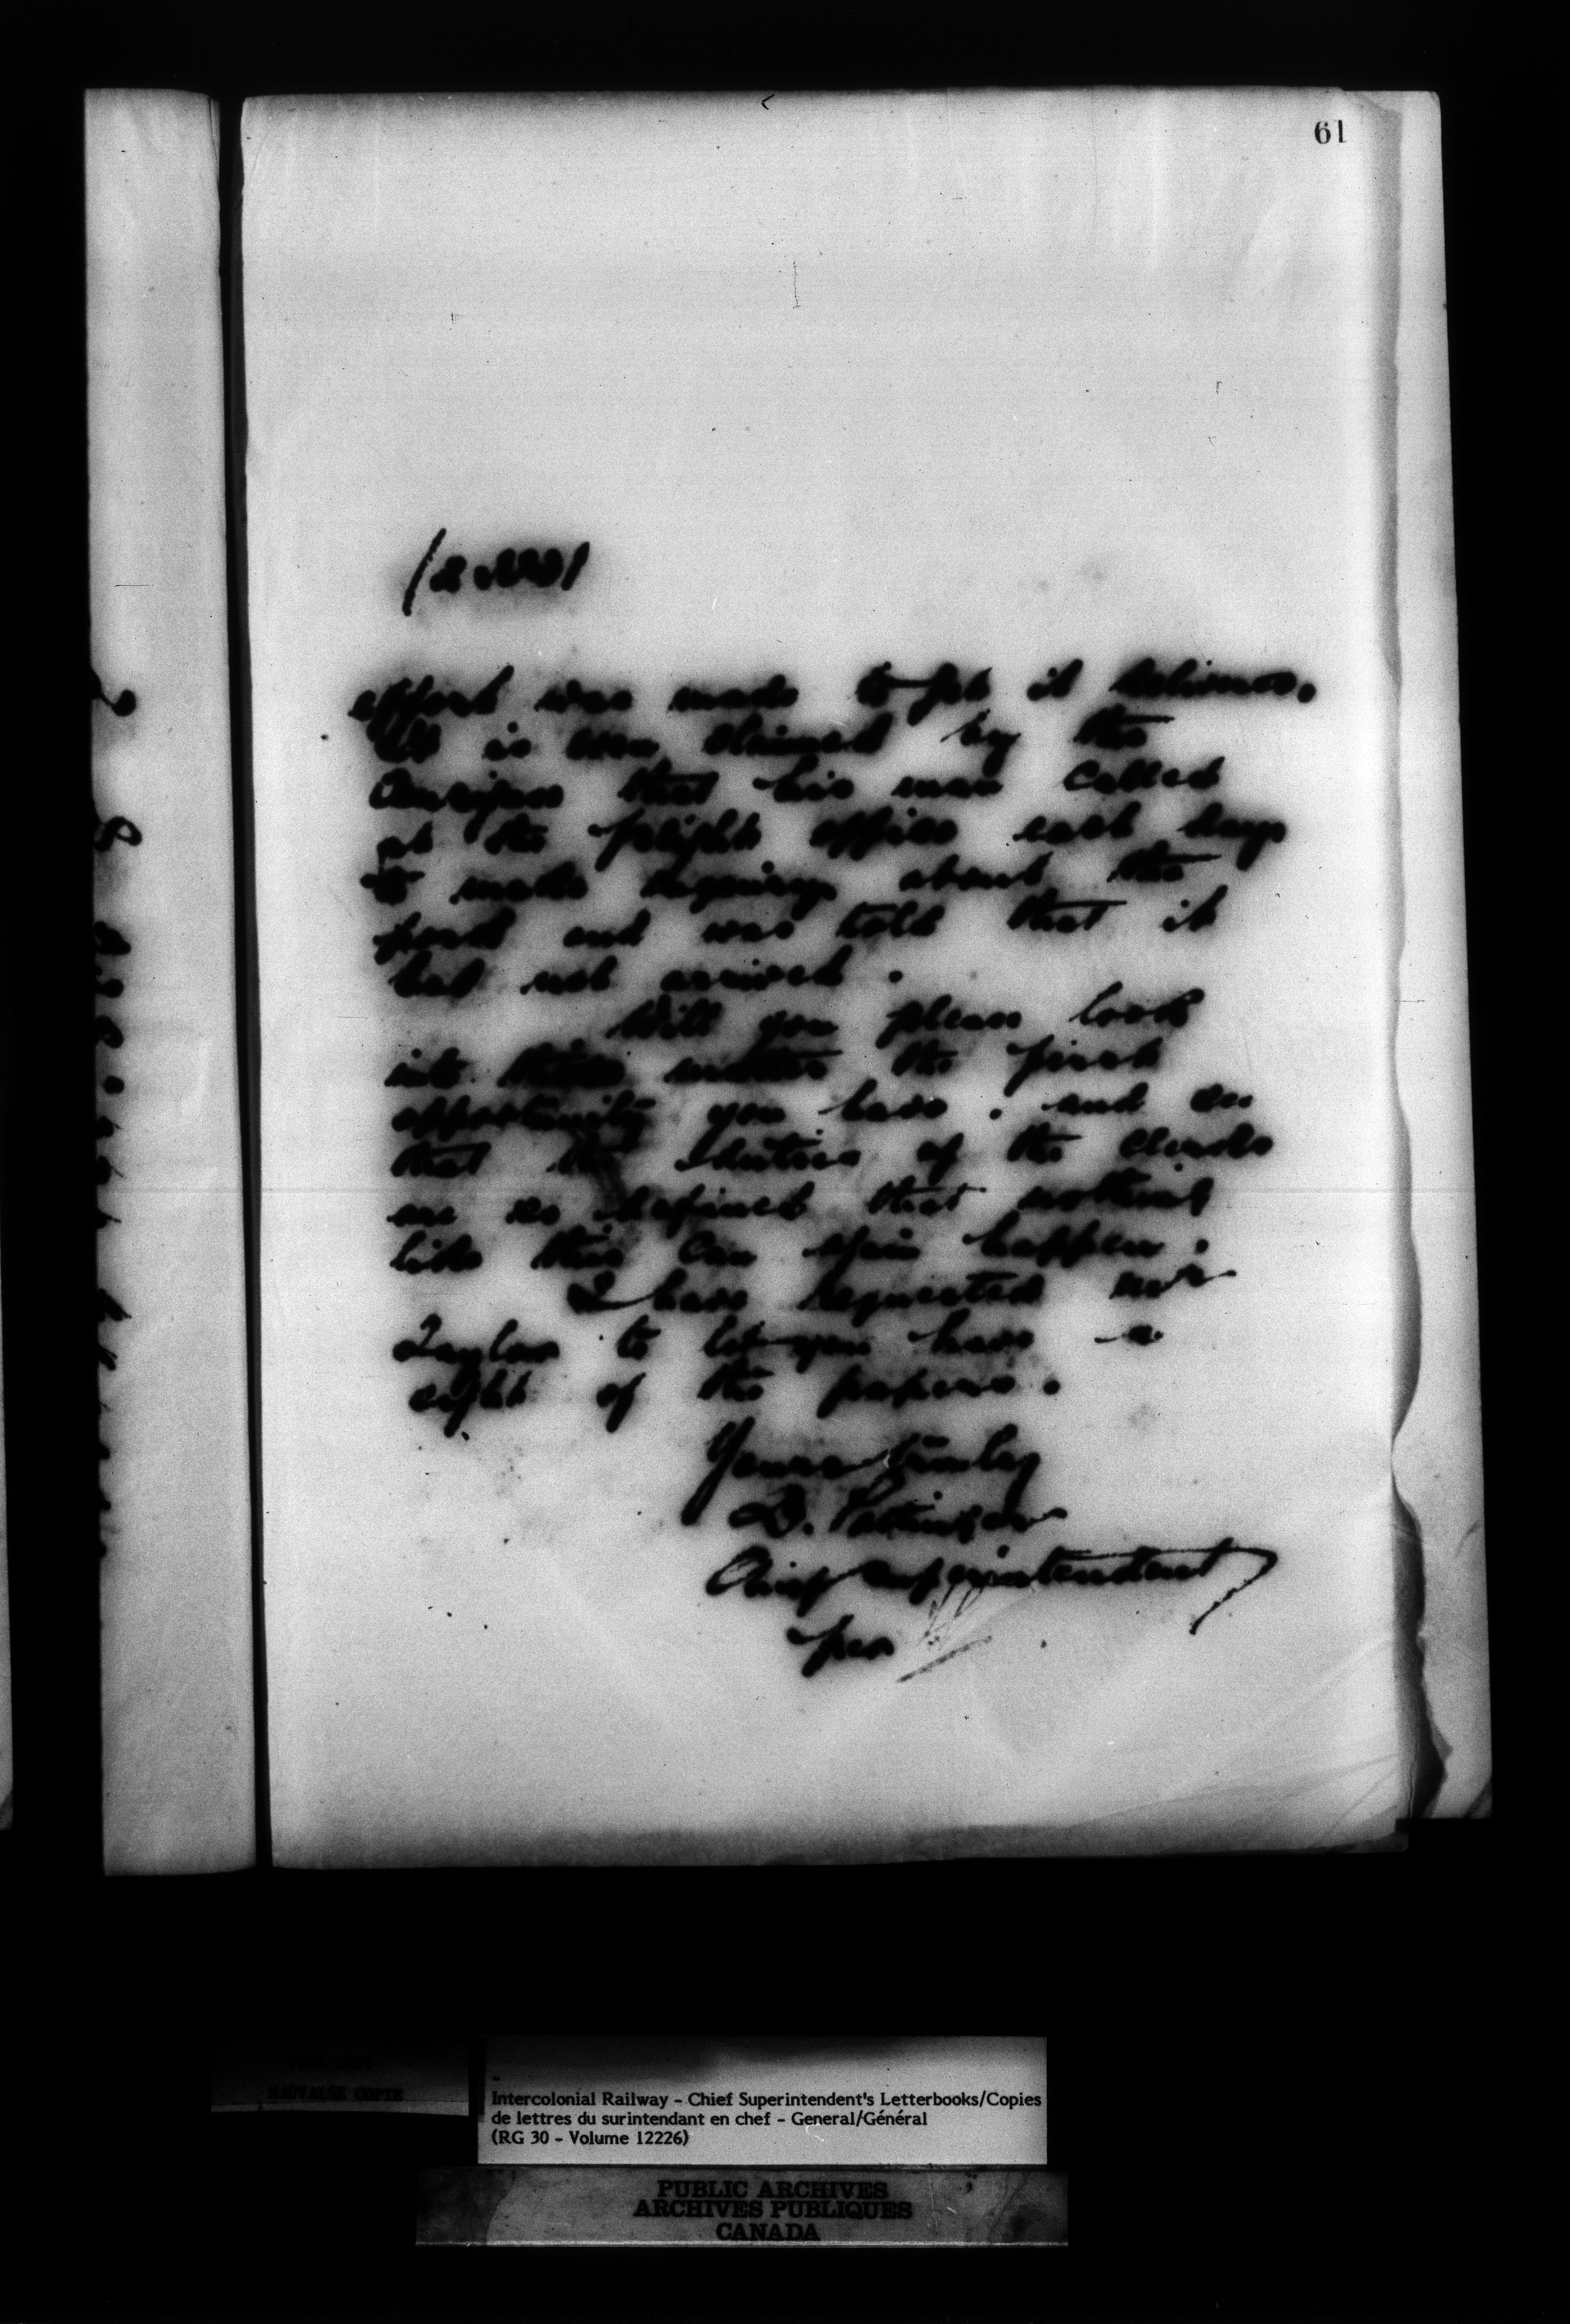 61
effort was made to get it delivered.
It is even claimed by the
Consignee that his man called
at the freight office each day
to make inquiry about the
pork and was told that it
had not arrived.
Will you please look
into this matter the first
opportunity you have. and see
that the duties of the clerks
are so defined that nothing
like this can again happen.
I have requested Mr
Taylor to let you have a
sight of the papers.
Yours truly
D. Pottinger
Chief Superintendent
per
MAUVAISE COPIE
Intercolonial Railway - Chief Superintendent's Letterbooks/Copies
de lettres du surintendant en chef - General/Général
(RG 30 - Volume 12226)
PUBLIC ARCHIVES
ARCHIVES PUBLIQUES
CANADA